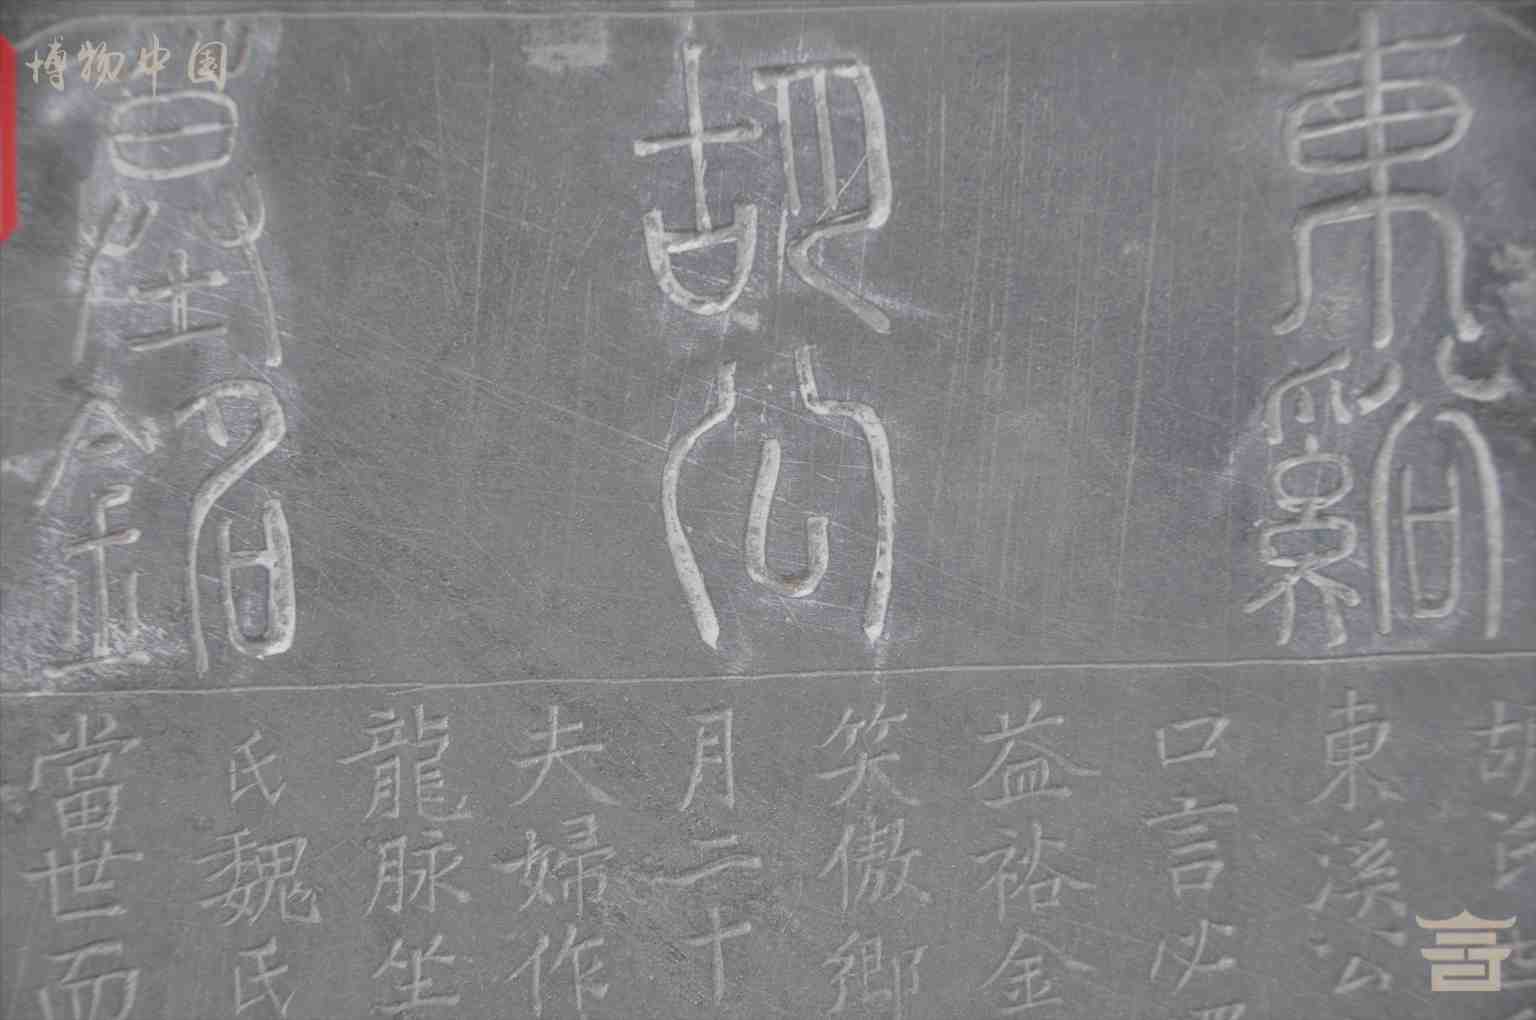 博物中国
東谿
胡公
墓銘
胡
東溪公
口言必
益裕金
笑傲鄉
月二十
夫婦作
龍脉坐
氏魏氏
當世而